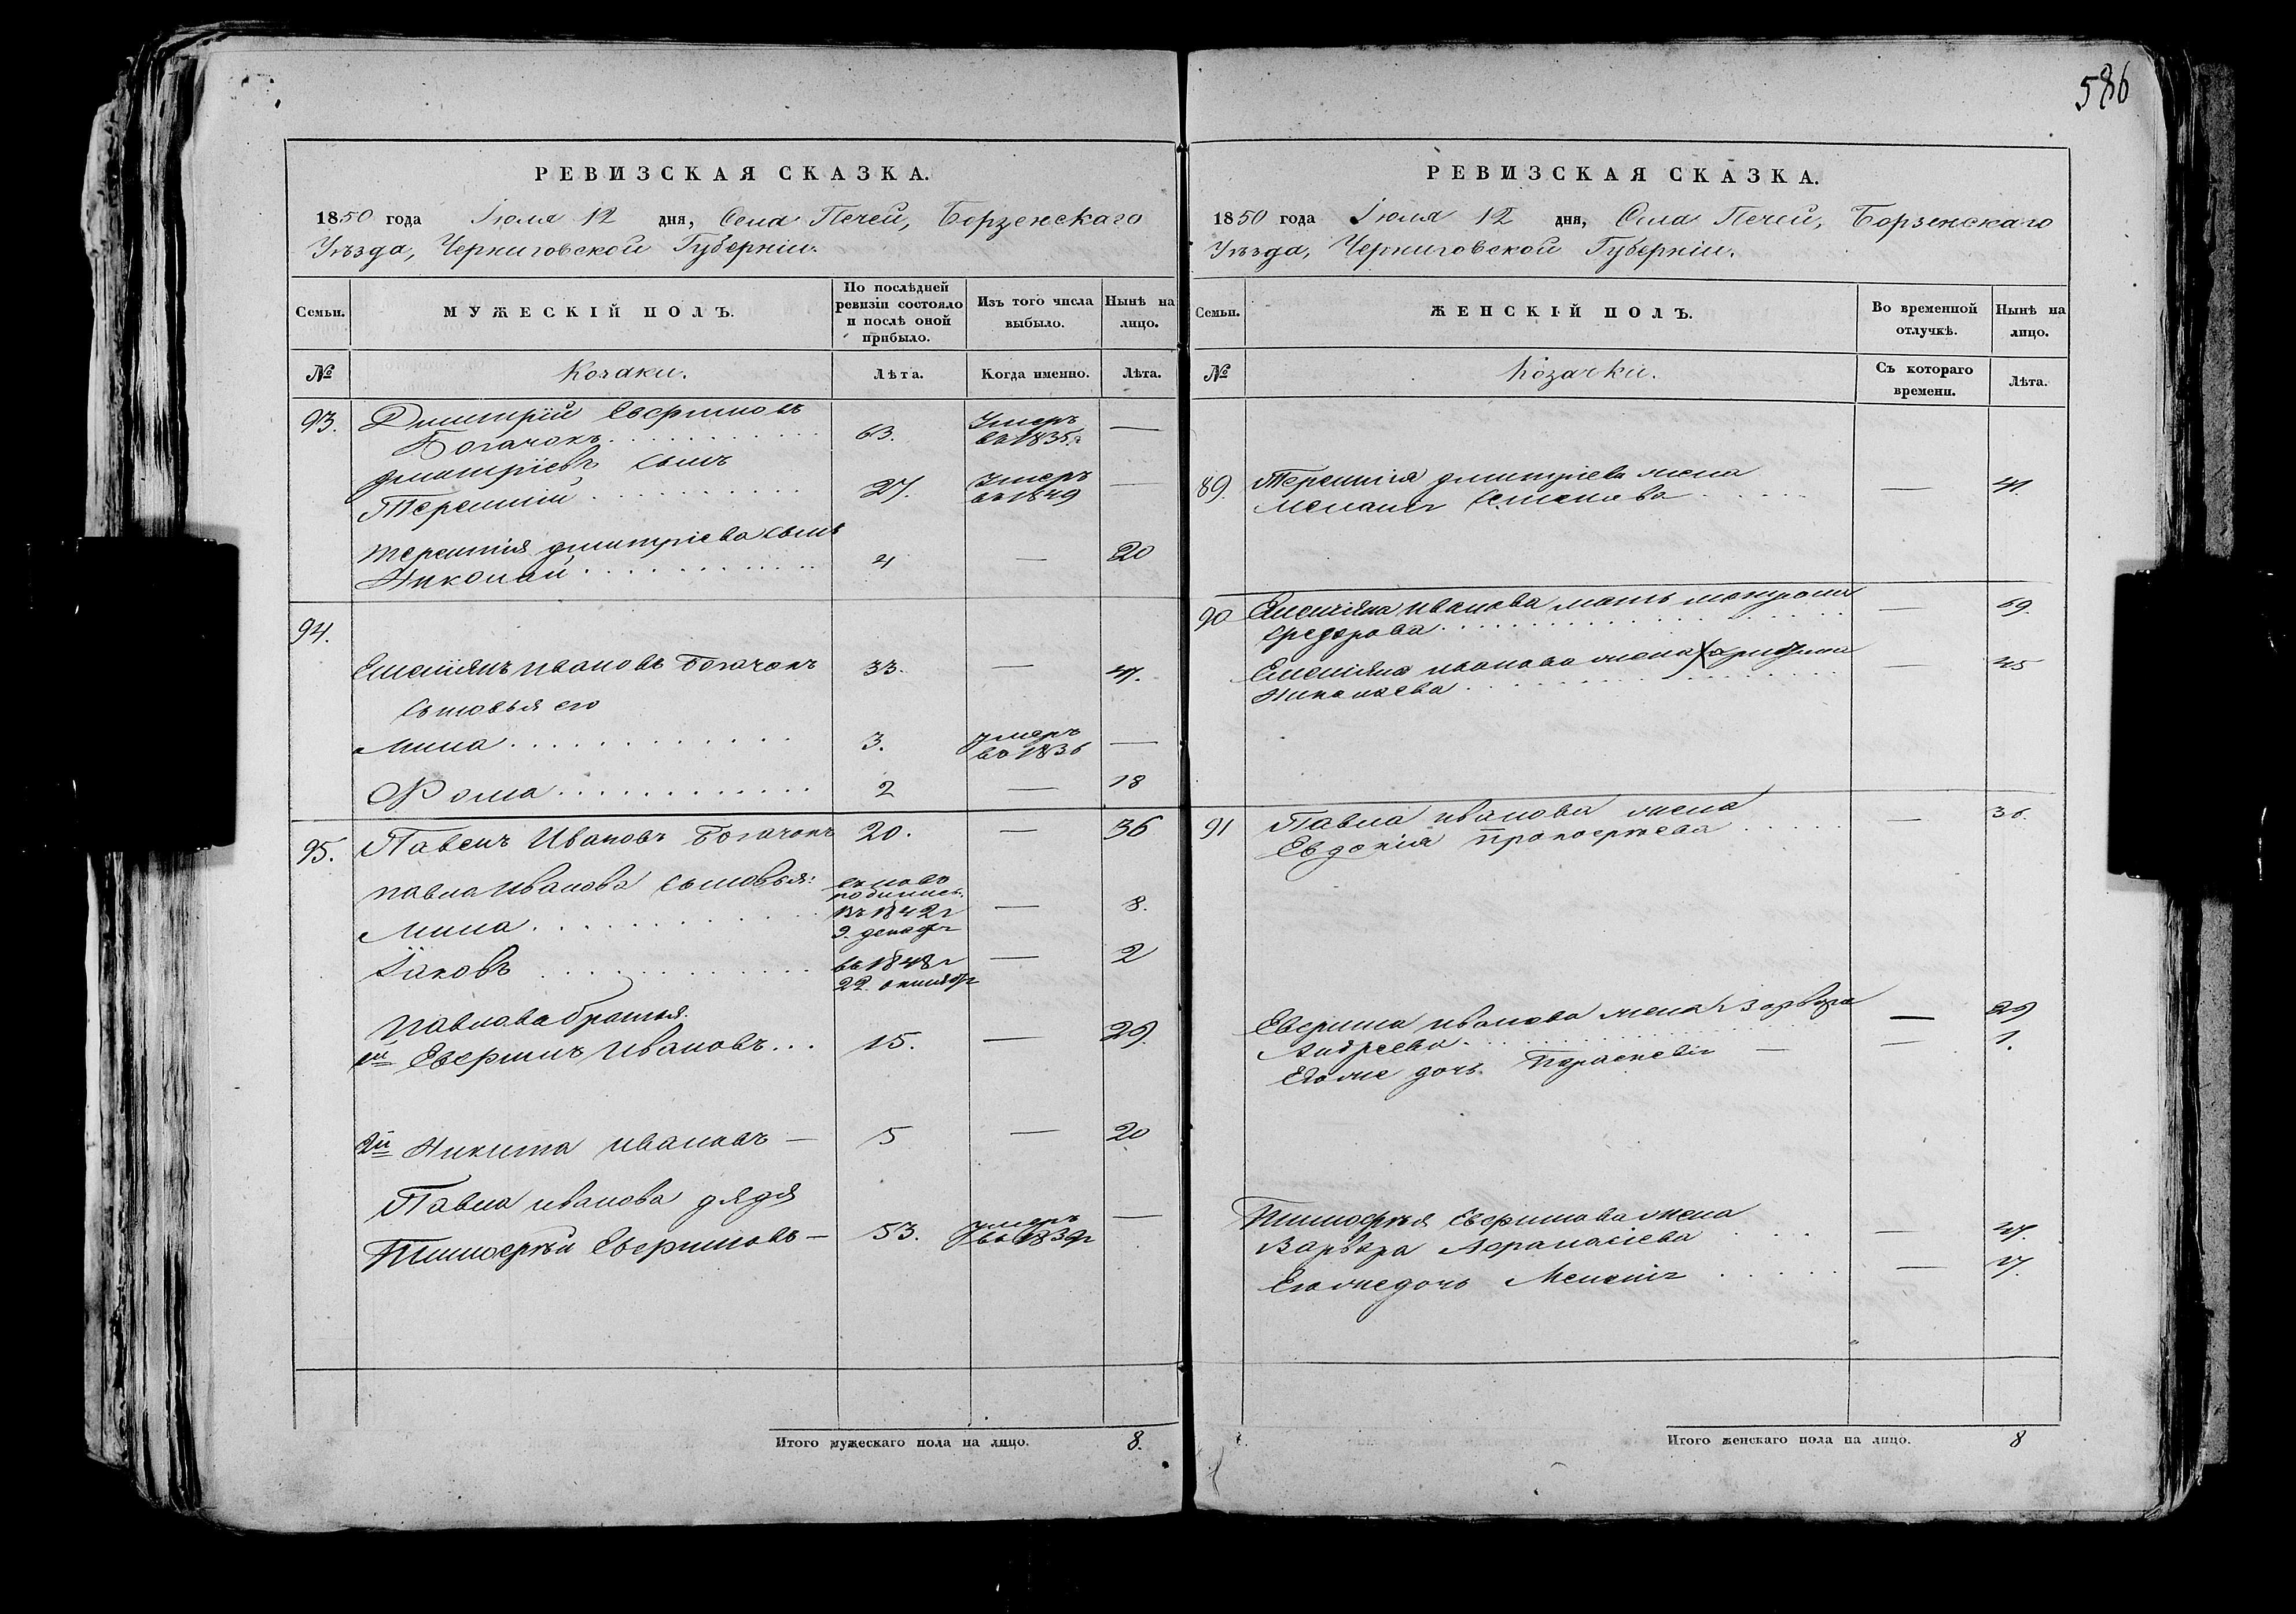 586
РЕВИЗСКАЯ СКАЗКА.
1850 года Іюля 12 дня, Села Печей, Борзенскаго
Уѣзда, Черниговской Губерніи.
Семьи.
МУЖЕСКІЙ ПОЛЪ.
По послѣдней
ревизіи состояло
и послѣ оной
прибыло.
Изъ того числа
выбыло.
Нынѣ на
лицо.
№
Козаки.
Лѣта.
Когда именно.
Лѣта.
93. Димитрій Евфимовъ
Богачокъ 63. Умеръ
въ 1835.г —
Дмитріевъ сынъ
Терентій 27. Умеръ
въ 1849 —
Терентія Дмитріева сынъ
Николай 4 — 20
94.
Емельянъ Ивановъ Богачокъ 33. — 47.
Сыновья его
Мина 3. Умеръ
во 1836 —
Фома 2 — 18
95. Павелъ Ивановъ Богачокъ 20. — 36
Павла Иванова сыновья:
Мина
въ 1842г
9. декабр — 8.
Іаковъ въ 1848г
22. октябр — 2
Павлова братья.
1й Евфимъ Ивановъ 15. — 29
2й Никита Ивановъ — 5 — 20
Павла Иванова дядя
Тимофѣй Евфимовъ — 53. Умеръ —
Итого мужескаго пола на лицо. 8.
РЕВИЗСКАЯ СКАЗКА.
1850 года Іюля 12 дня, Села Печей, Борзенскаго
Уѣзда, Черниговской Губерніи.
Семьи.
ЖЕНСКІЙ ПОЛЪ.
Во временной
отлучкѣ.
Нынѣ на
лицо.
№
Козачки.
Съ котораго
времени.
Лѣта.
89. Терентія Дмитріева жена
Меланія Семенова — 41.
90 Емельяна Иванова мать Матрона
Федорова — 69.
Емельяна Иванова жена Харитина
Николаева — 45
91 Павла Иванова жена
Евдокія Прокофьева — 36.
Евфима Иванова жена Варвара
Андреева — 29
Егоже дочь Параскевія — — 1.
Тимофѣя Евфимова жена
Варвара Афанасіева — 47.
Егоже дочь Меланія — 17.
Итого женскаго пола на лицо. 8